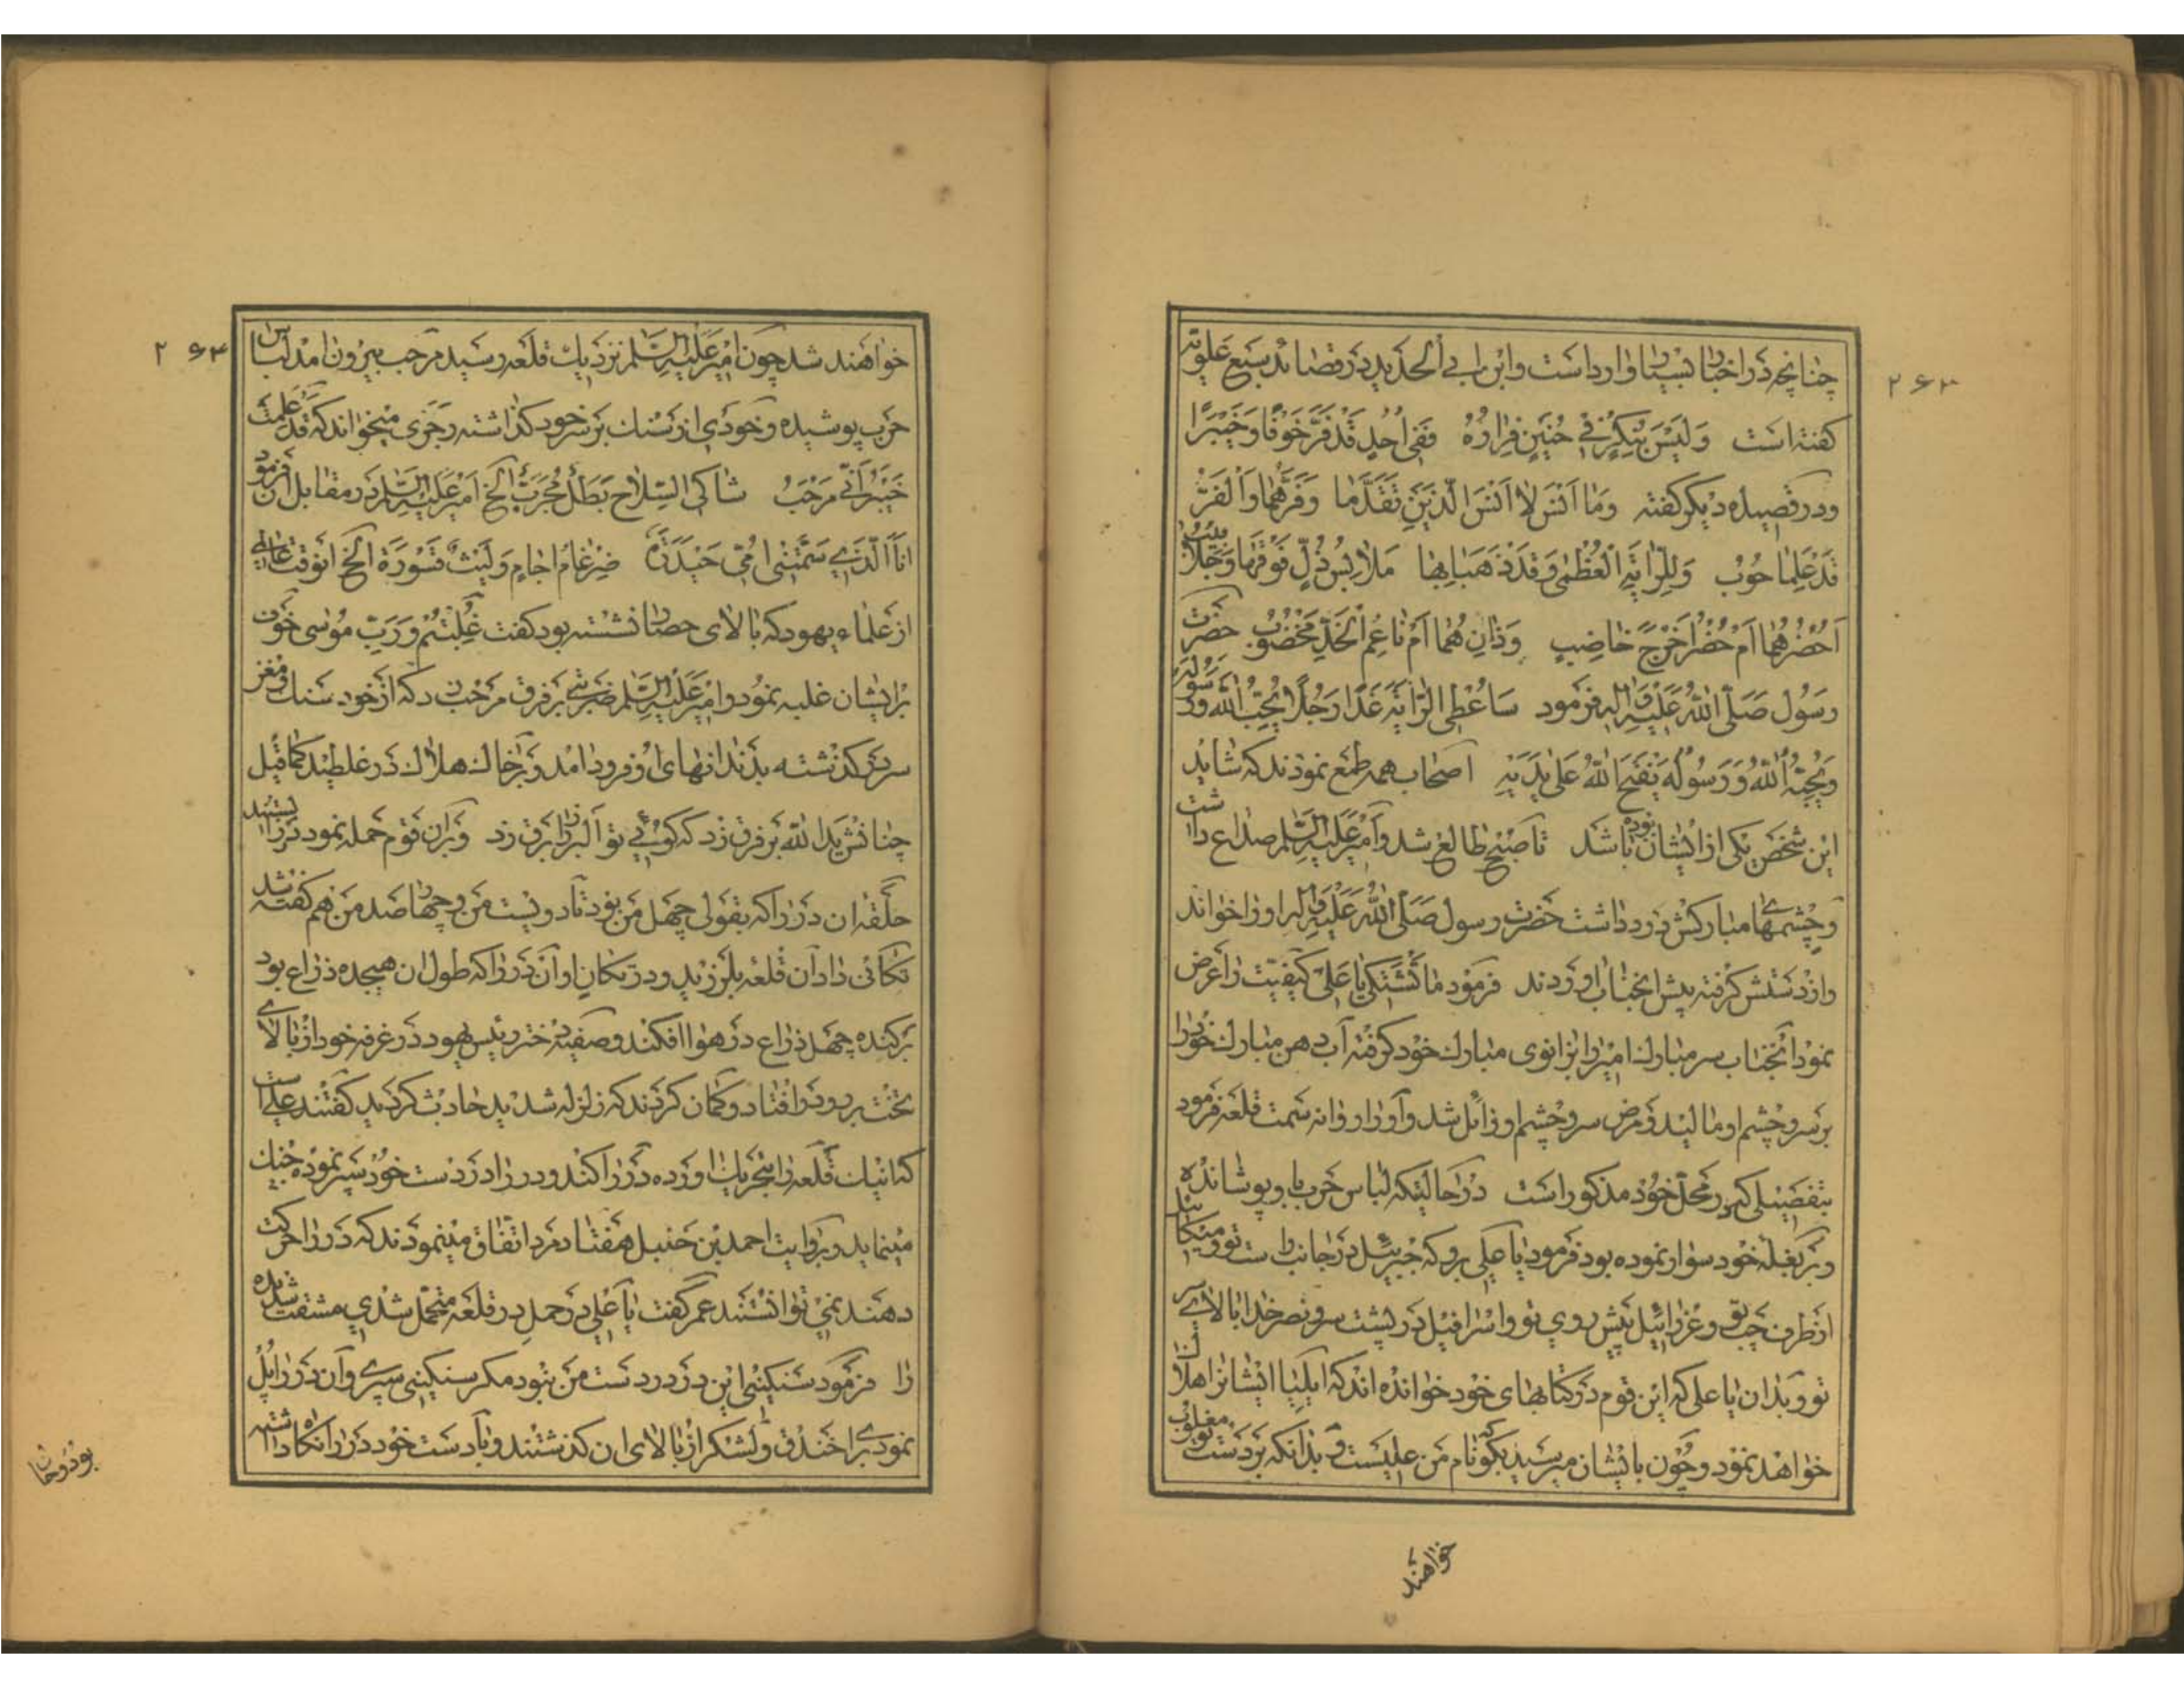 ۲۶۳
چنانچه در اخبار بسیار وارد است وابن ابی الحدید در قصائد سبع علویه
گفته است ولیس بنکر فی حنین فراره ففی احد قد فر خوفا وخیبرا
ودر قصیده دیگر گفته وما انس لا انس الذین تقدما وفرهما والفر
قد علما حوب وللرایة العظمی وقد ذهبا بها ملابس ذل فوقها وجلابیب
احضرهما ام حضر اخرج خاضب وذان هما ام ناعم الخد مخضوب حضرت
رسول صلی الله علیه واله فرمود ساعطی الرایة غدا رجلا یحب الله ورسوله
ویحبه الله ورسوله یفتح الله علی یدیه اصحاب همه طمع نمودند که شاید
این شخص یکی از ایشان بوده باشد تا صبح طالع شد وامیر علیه السلام صداع داشت
وچشمهای مبارکش درد داشت حضرت رسول صلی الله علیه واله او را خواند
واز دستش گرفته پیش انجناب اوردند فرمود ما تشتکی یا علی کیفیت را عرض
نمود انجناب سر مبارک امیر را بزانوی مبارک خود گرفته آب دهن مبارک خود را
بر سر وچشم او مالید ومرض سر وچشم او زائل شد واو را روانه سمت قلعه فرمود
بتفصیلی که در محل خود مذکور است در حالتیکه لباس حرب باو پوشانده
وبر بغله خود سوار نموده بود فرمود یا علی برو که جبرئیل در جانب راست تو ومیکائیل
از طرف چپ تو وعزرائیل پیش روی تو واسرافیل در پشت سر ونصر خدا بالای سر
تو وبدان یا علی که این قوم در کتابهای خود خوانده اند که ایلیا ایشانرا هلاک
خواهد نمود وچون بایشان میرسید بگو که نام من علیست وبدانکه بر دست تو مغلوب
خواهند
۲۶۴
خواهند شد چون امیر علیه السلام نزدیک قلعه رسید مرحب بیرون امد لباس
حرب پوشیده وخودی از سنک بر سر خود گذاشته رجزی میخواند که قد علمت
خیبر انی مرحب شاکی السلاح بطل مجرب الخ امیر علیه السلام در مقابل ان فرمود
انا الذی سمتنی امی حیدره ضرغام اجام ولیث قسورة الخ انوقت عالمی
از علماء یهود که بالای حصار نشسته بود گفت غلبتم ورب موسی خوف
بر ایشان غلبه نمود وامیر علیه السلام ضربتی بر فرق مرحب زد که از خود سنک ومغز
سرش گذشته بدندانهای او فرود امد وبر خاک هلاک در غلطید کما قیل
چنانش ید الله بر فرق زد که گوئی تو البرز را برق زد وبر ان قوم حمله نمود در را بستند
حلقه ان در را که بقولی چهل من بود تا دویست من وچهار صد من هم گفته شد
تکانی داد آن قلعه بلرزید ودر تکان او آن در را که طول ان هیجده ذراع بود
بر کنده چهل ذراع در هوا افکند وصفیه دختر رئیس یهود در غرفه خود از بالای
تخت بر رو در افتاد وگمان کردند که زلزله شدید حادث گردید گفتند علی است
که اینک قلعه را بتحریک اورده در را کند ودر را در دست خود سپر نموده جنک
مینماید وبروایت احمد بن حنبل هفتاد مرد اتفاق مینمودند که در را حرکت
دهند نمی توانستند عمر گفت یا علی در حمل در قلعه متحمل شدی مشقت شدیده
را فرمود سنگینی این در در دست من نبود مگر سنگینی سپری وآن در را پل
نمود برای خندق ولشکر از بالای ان گذشتند وبا دست خود در را نگاه داشته
بود وحان